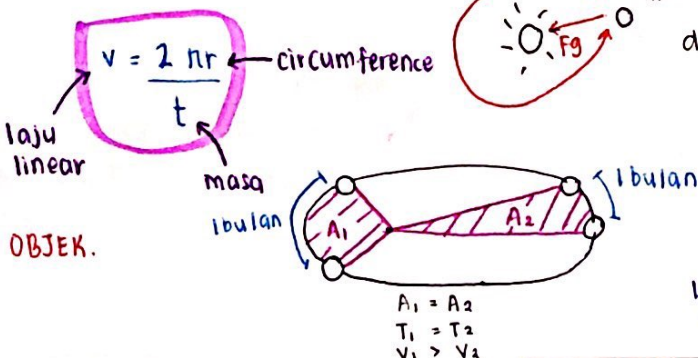 v = 2πr / t
circumference
laju linear
masa
Fg
d
1 bulan
A₁
A₂
1 bulan
OBJEK.
A₁ = A₂
T₁ = T₂
V₁ > V₂